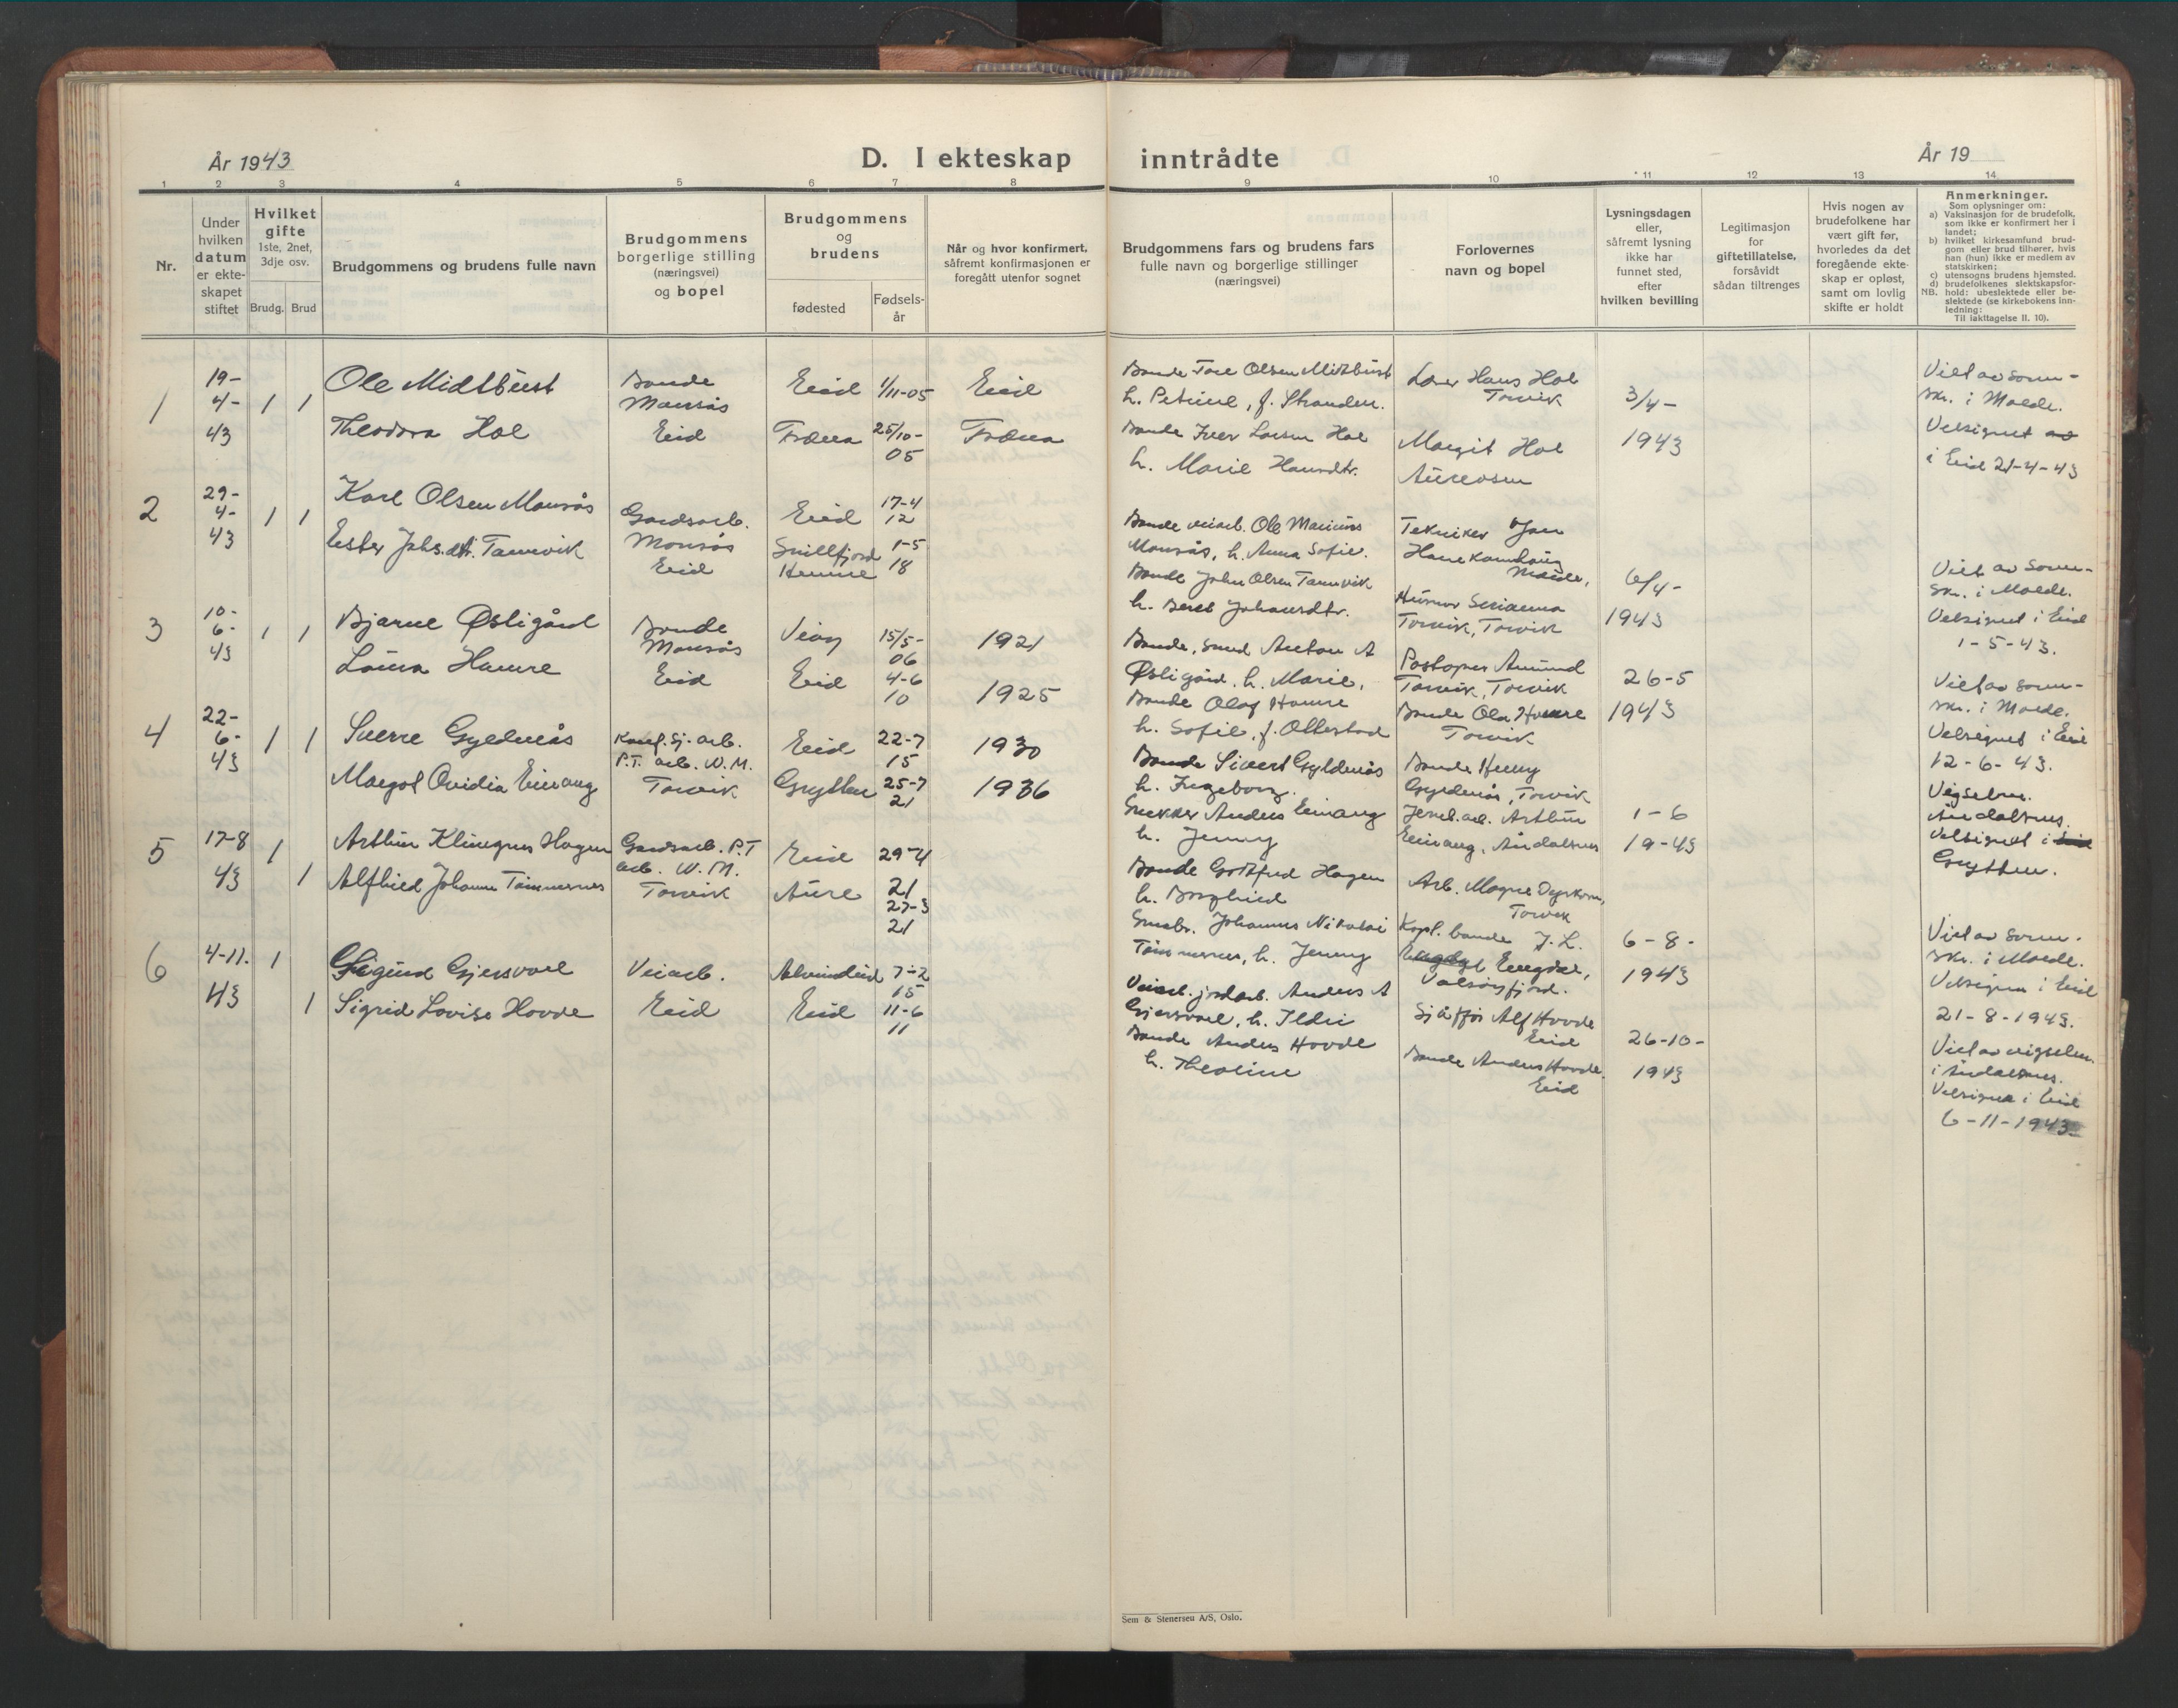 År 1943
D. I ekteskap inntrådte
År 19
1 2 3 4 5 6 7 8 9 10 11 12 13 14
Nr.
Under hvilken datum er ekte-skapet stiftet
Hvilket gifte
1ste, 2net, 3dje osv.
Brudg. Brud
Brudgommens og brudens fulle navn
Brudgommens borgerlige stilling (næringsvei) og bopel
Brudgommens og brudens
fødested
Fødsels-år
Når og hvor konfirmert, såfremt konfirmasjonen er foregått utenfor sognet
Brudgommens fars og brudens fars fulle navn og borgerlige stillinger (næringsvei)
Forlovernes navn og bopel
Lysningsdagen eller, såfremt lysning ikke har funnet sted, efter hvilken bevilling
Legitimasjon for giftetillatelse, forsåvidt sådan tiltrenges
Hvis nogen av brudefolkene har vært gift før, hvorledes da det foregående ekte-skap er opløst, samt om lovlig skifte er holdt
Anmerkninger.
Som oplysninger om:
a) Vaksinasjon for de brudefolk, som ikke er konfirmert her i landet;
b) hvilket kirkesamfund brud-gom eller brud tilhører, hvis han (hun) ikke er medlem av statskirken;
c) utensogns brudens hjemsted.
d) brudefolkenes slektskapsfor-hold: ubeslektede eller be-slektede (se kirkebokens inn-ledning:
NB.
Til iakttagelse II. 10).
1
19-
4-
43
1 1
Ole Midtbust
Theodora Hol
Bonde
Monsås
Eid
Eid 1/11-05 Eid
Fræna 25/10-05 Fræna
Bonde Tore Olsen Midtbust
h. Petrine, f. Stranden.
Bonde Iver Larsen Hol
h. Marie Hansdtr.
Lærer Hans Hol
Torvik
Margit Hol
Aureosen
3/4-
1943
Viet av Soren-
skr. i Molde.
Velsignet
i Eid 21-4-43
2
29-
4-
43
1 1
Karl Olsen Monsås
Ester Johs.dtr. Tannvik
Gardsarb.
Monsås
Eid
Eid 17-4 12
Snillfjord
Hemne 1-5 18
Bonde veiarb. Ole Marius
Monsås, h. Anna Sofie.
Bonde John Olsen Tannvik
h. Beret Johansdtr.
Tekniker Jon
Hanekamhaug
Molde,
Husmor Serianna
Torvik, Torvik
6/4-
1943
Viet av Soren-
skr. i Molde.
Velsignet i Eid
1-5-43.
3
10-
6-
43
1 1
Bjarne Østigård
Laura Hamre
Bonde
Monsås
Eid
Veøy 15/5-06 1921
Eid 4-6 10 1925
Bonde, smed Anton A
Østigård, h. Marie,
Bonde Olaf Hamre
h. Sofie, f. Ottestad
Postopner Amund
Torvik, Torvik
Bonde Ola Hamre
Torvik
26-5
1943
Viet av soren-
skr. i Molde.
Velsignet i Eid
12-6-43.
4
22-
6-
43
1 1
Sverre Gyldenås
Margot Ovidia Einang
P.T. arb. W.M.
Torvik
Eid 22-7 15 1930
Grytten 25-7 21 1936
Bonde Sivert Gyldenås
h. Ingeborg.
Snekker Anders Einang
h. Jenny
Bonde Henry
Gyldenås, Torvik
Jernb.arb. Arthur
Einang, Åndalsnes
1-6
19-43
Vigselsm.
Åndalsnes.
Velsignet i
Grytten.
5
17-8
43
1 1
Arthur Klingnes Hagen
Alfhild Johanne Tømmernes
Gardsarb. P.T
arb. W.M.
Torvik
Eid 29-4 21
Aure 27-3 21
Bonde Gottfred Hagen
h. Borghild
Småbr. Johannes Nikolai
Tømmernes, h. Jenny
Arb. Magne Dyrkorn,
Torvik
Kapt. bonde J. L.
Engdal,
Valsøyfjord.
6-8-
1943
Viet av soren-
skr. i Molde.
Velsignet i Eid
21-8-1943.
6
4-11.
43
1 1
Sigurd Gjersvoll
Sigrid Lovise Hovde
Veiarb.
Eid
Alvundeid 7-2 15
Eid 11-6 11
Veiarb. jordarb. Anders A
Gjersvoll, h. Ildri
Bonde Anders Hovde
h. Theoline
Sjåffør Alf Hovde
Eid
Bonde Anders Hovde.
Eid
26-10-
1943
Viet av vigselsm.
i Åndalsnes.
Velsignet i Eid
6-11-1943
Sem & Stenersen A/S, Oslo.